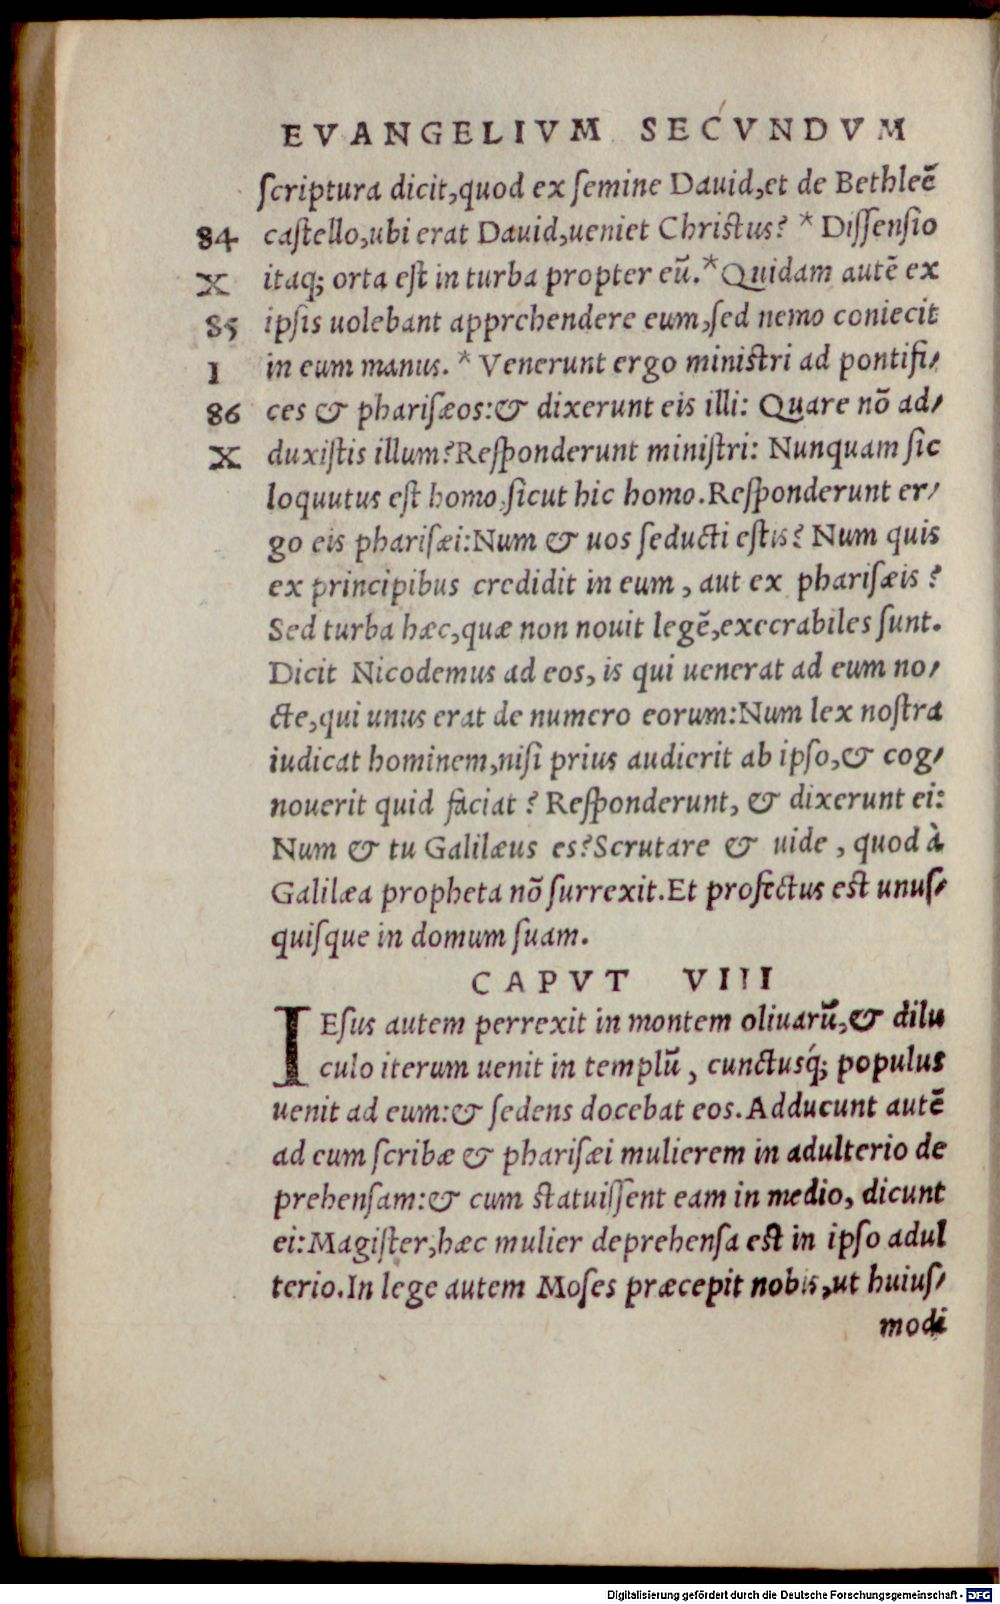 EVANGELIVM SECVNDVM
ſcriptura dicit,quod ex ſemine Dauid,et de Bethleē
84 caſtello,ubi erat Dauid,ueniet Chriſtus? * Diſſenſio
X itaq; orta eſt in turba propter eū.*Quidam autē ex
85 ipſis uolebant apprehendere eum,ſed nemo coniecit
I in eum manus. * Venerunt ergo miniſtri ad pontifi-
86 ces & phariſæos:& dixerunt eis illi: Quare nō ad-
X duxiſtis illum?Reſponderunt miniſtri: Nunquam ſic
loquutus eſt homo,ſicut hic homo.Reſponderunt er-
go eis phariſæi:Num & uos ſeducti eſtis? Num quis
ex principibus credidit in eum , aut ex phariſæis ?
Sed turba hæc,quæ non nouit legē,execrabiles ſunt.
Dicit Nicodemus ad eos, is qui uenerat ad eum no-
cte,qui unus erat de numero eorum:Num lex noſtra
iudicat hominem,niſi prius audierit ab ipſo,& cog-
nouerit quid faciat ? Reſponderunt, & dixerunt ei:
Num & tu Galilæus es?Scrutare & uide , quod à
Galilæa propheta nō ſurrexit.Et profectus eſt unuſ-
quiſque in domum ſuam.
CAPVT VIII
IEſus autem perrexit in montem oliuarū,& dilu
culo iterum uenit in templū , cunctusq́; populus
uenit ad eum:& ſedens docebat eos.Adducunt autē
ad eum ſcribæ & phariſæi mulierem in adulterio de
prehenſam:& cum ſtatuiſſent eam in medio, dicunt
ei:Magiſter,hæc mulier deprehenſa eſt in ipſo adul
terio.In lege autem Moſes præcepit nobis,ut huiuſ-
modi
Digitalisierung gefördert durch die Deutsche Forschungsgemeinschaft - DFG